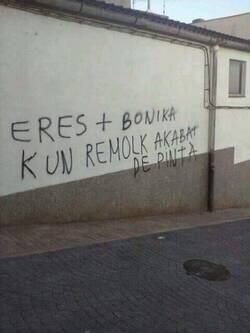 ERES + BONIKA
K UN REMOLK AKABAT
DE PINTA